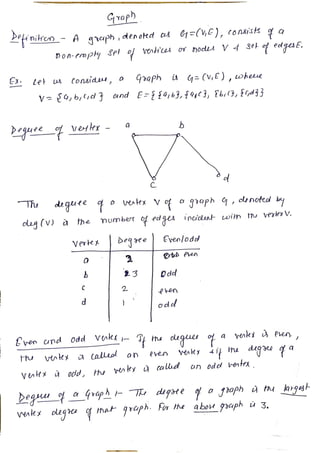 Graph
Definition - A graph, denoted as G=(V,E), consists of a
non-empty set of vertices or nodes V & set of edges E.
Ex. Let us consider, a Graph is G=(V,E), where
V = {a,b,c,d} and E={{a,b},{a,c},{b,c},{c,d}}
Degree of Vertex -
a b
c d
The degree of a vertex V of a graph G, denoted by
deg(V) is the number of edges incident with the vertex V.
Vertex Degree Even/odd
a 2 even
b 3 odd
c 2 even
d 1 odd
Even and odd Vertex :- If the degree of a vertex is even,
the vertex is called an even vertex & if the degree of a
vertex is odd, the vertex is called an odd vertex.
Degree of a Graph :- The degree of a graph is the largest
vertex degree of that graph. For the above graph is 3.